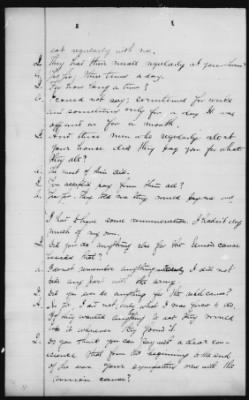 eat regularly with me.
Q. They had their meals regularly at your house?
a. Yes sir, three times a day.
Q. For how long a time?
a. I could not say; sometimes for weeks
and sometimes only for a day & was
for a month.
Q. And these men who regularly ate at
your house did they pay you for what
they ate?
a. The most of them did.
Q. You accepted pay from them all?
a. Yes sir. They told me they would pay me and
I had to have some remuneration. I hadn't
much of my own.
Q. Did you do anything else for the Union cause
beside that?
a. I cannot remember anything I did not
take any part with the army.
Q. Did you ever do anything for the rebel cause?
a. No sir, I did not only what I was forced to do.
If they wanted anything to eat they would
take it wherever they found it.
Q. Do you think you can say with a clear con-
science that from the beginning to the end
of the war your sympathies were with the
Union cause?